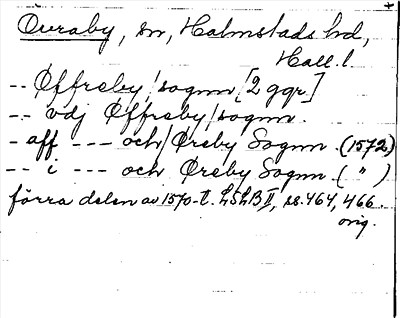 Övraby, sn, Halmstads hd,
Hall. l.
-- Øffreby/sognn [2 ggr]
-- vdj Øffreby/sognn.
- aff --- och/Øreby Sognn. (1572)
-- i --- och Øreby Sognn ( " )
förra delen av 1570-t. LSHB II, ss. 464, 466.
orig.